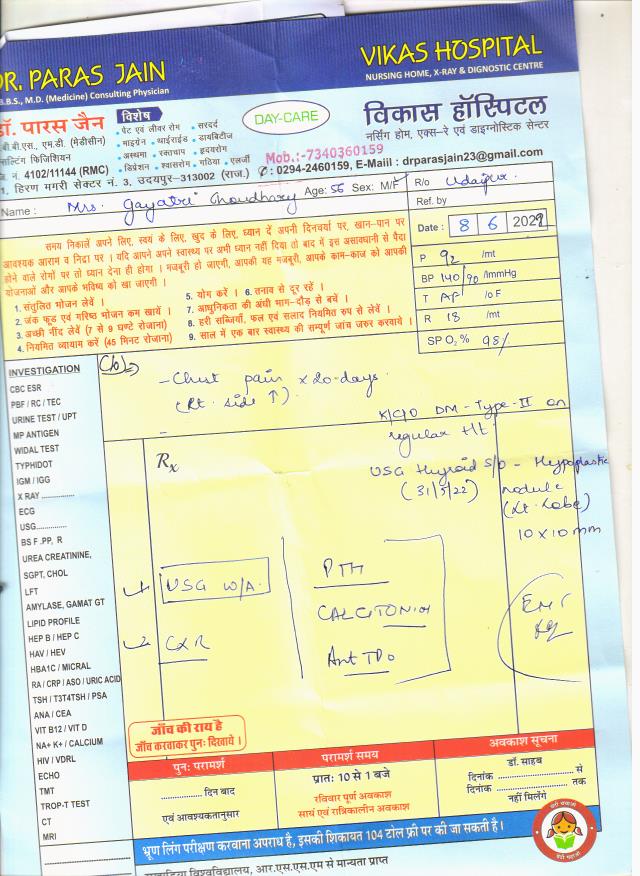 DR. PARAS JAIN
VIKAS HOSPITAL
B.B.S., M.D. (Medicine) Consulting Physician
NURSING HOME, X-RAY & DIGNOSTIC CENTRE
डॉ. पारस जैन
विशेष
DAY-CARE
विकास हॉस्पिटल
बी.बी.एस., एम.डी. (मेडीसीन)
• पेट एवं लीवर रोग • सरदर्द
नर्सिंग होम, एक्स-रे एवं डाइग्नोस्टिक सेन्टर
सल्टिंग फिजिशियन
• माइग्रेन • थाईराईड • डायबिटीज
• अस्थमा • रक्तचाप • हृदयरोग
Mob.:-7340360159
नं. 4102/11144 (RMC)
• डिप्रेशन • श्वासरोग • गठिया • एलर्जी
✆ 0294-2460159, E-Maiil : drparasjain23@gmail.com
1, हिरण मगरी सेक्टर नं. 3, उदयपुर-313002 (राज.)
Name : Mrs. Gayatri Choudhary Age: 56 Sex: M/F R/o Udaipur.
Ref. by
Date : 8 6 2022
समय निकालें अपने लिए, स्वयं के लिए, खुद के लिए, ध्यान दें अपनी दिनचर्या पर, खान-पान पर
आवश्यक आराम व निद्रा पर । यदि आपने अपने स्वास्थ्य पर अभी ध्यान नहीं दिया तो बाद में इस असावधानी से पैदा
होने वाले रोगों पर तो ध्यान देना ही होगा । मजबूरी हो जाएगी, आपकी यह मजबूरी, आपके काम-काज को आपकी
योजनाओं और आपके भविष्य को खा जाएगी ।
1. संतुलित भोजन लेवें ।
2. जंक फूड एवं गरिष्ठ भोजन कम खायें ।
3. अच्छी नींद लेवें (7 से 9 घण्टे रोजाना)
4. नियमित व्यायाम करें (45 मिनट रोजाना)
5. योग करें । 6. तनाव से दूर रहें ।
7. आधुनिकता की अंधी भाग-दौड़ से बचें ।
8. हरी सब्जियाँ, फल एवं सलाद नियमित रुप से लेवें ।
9. साल में एक बार स्वास्थ्य की सम्पूर्ण जांच जरुर करवाये ।
P 92 /mt
BP 140/90 /mmHg
T AF /o F
R 18 /mt
SP O₂ % 98%
INVESTIGATION
CBC ESR
PBF / RC / TEC
URINE TEST / UPT
MP ANTIGEN
WIDAL TEST
TYPHIDOT
IGM / IGG
X RAY ..............
ECG
USG..............
BS F .PP, R
UREA CREATININE,
SGPT, CHOL
LFT
AMYLASE, GAMAT GT
LIPID PROFILE
HEP B / HEP C
HAV / HEV
HBA1C / MICRAL
RA / CRP / ASO / URIC ACID
TSH / T3T4TSH / PSA
ANA / CEA
VIT B12 / VIT D
NA+ K+ / CALCIUM
HIV / VDRL
ECHO
TMT
TROP-T TEST
CT
MRI
C/o
- Chest pain x 20-days.
(Rt. side ↑).
K/C/O DM-Type-II on
regular
Rx
USG thyroid S/O - Hypoplastic
(31/5/22) nodule
(Lt. Lobe)
10 x 10 mm
USG W/A.
CXR
PTH
CALCITONIN
Ant TPO
ENT
जाँच की राय है
जाँच करवाकर पुनः दिखाये ।
पुनः परामर्श
.................. दिन बाद
एवं आवश्यकतानुसार
परामर्श समय
प्रातः 10 से 1 बजे
रविवार पूर्ण अवकाश
सायं एवं रात्रिकालीन अवकाश
अवकाश सूचना
डॉ. साहब
दिनांक .................. से
दिनांक .................. तक
नहीं मिलेंगे
भ्रूण लिंग परीक्षण करवाना अपराध है, इसकी शिकायत 104 टोल फ्री पर की जा सकती है ।
बेटी बचाओ
विश्वविद्यालय, आर.एस.एस.एम से मान्यता प्राप्त